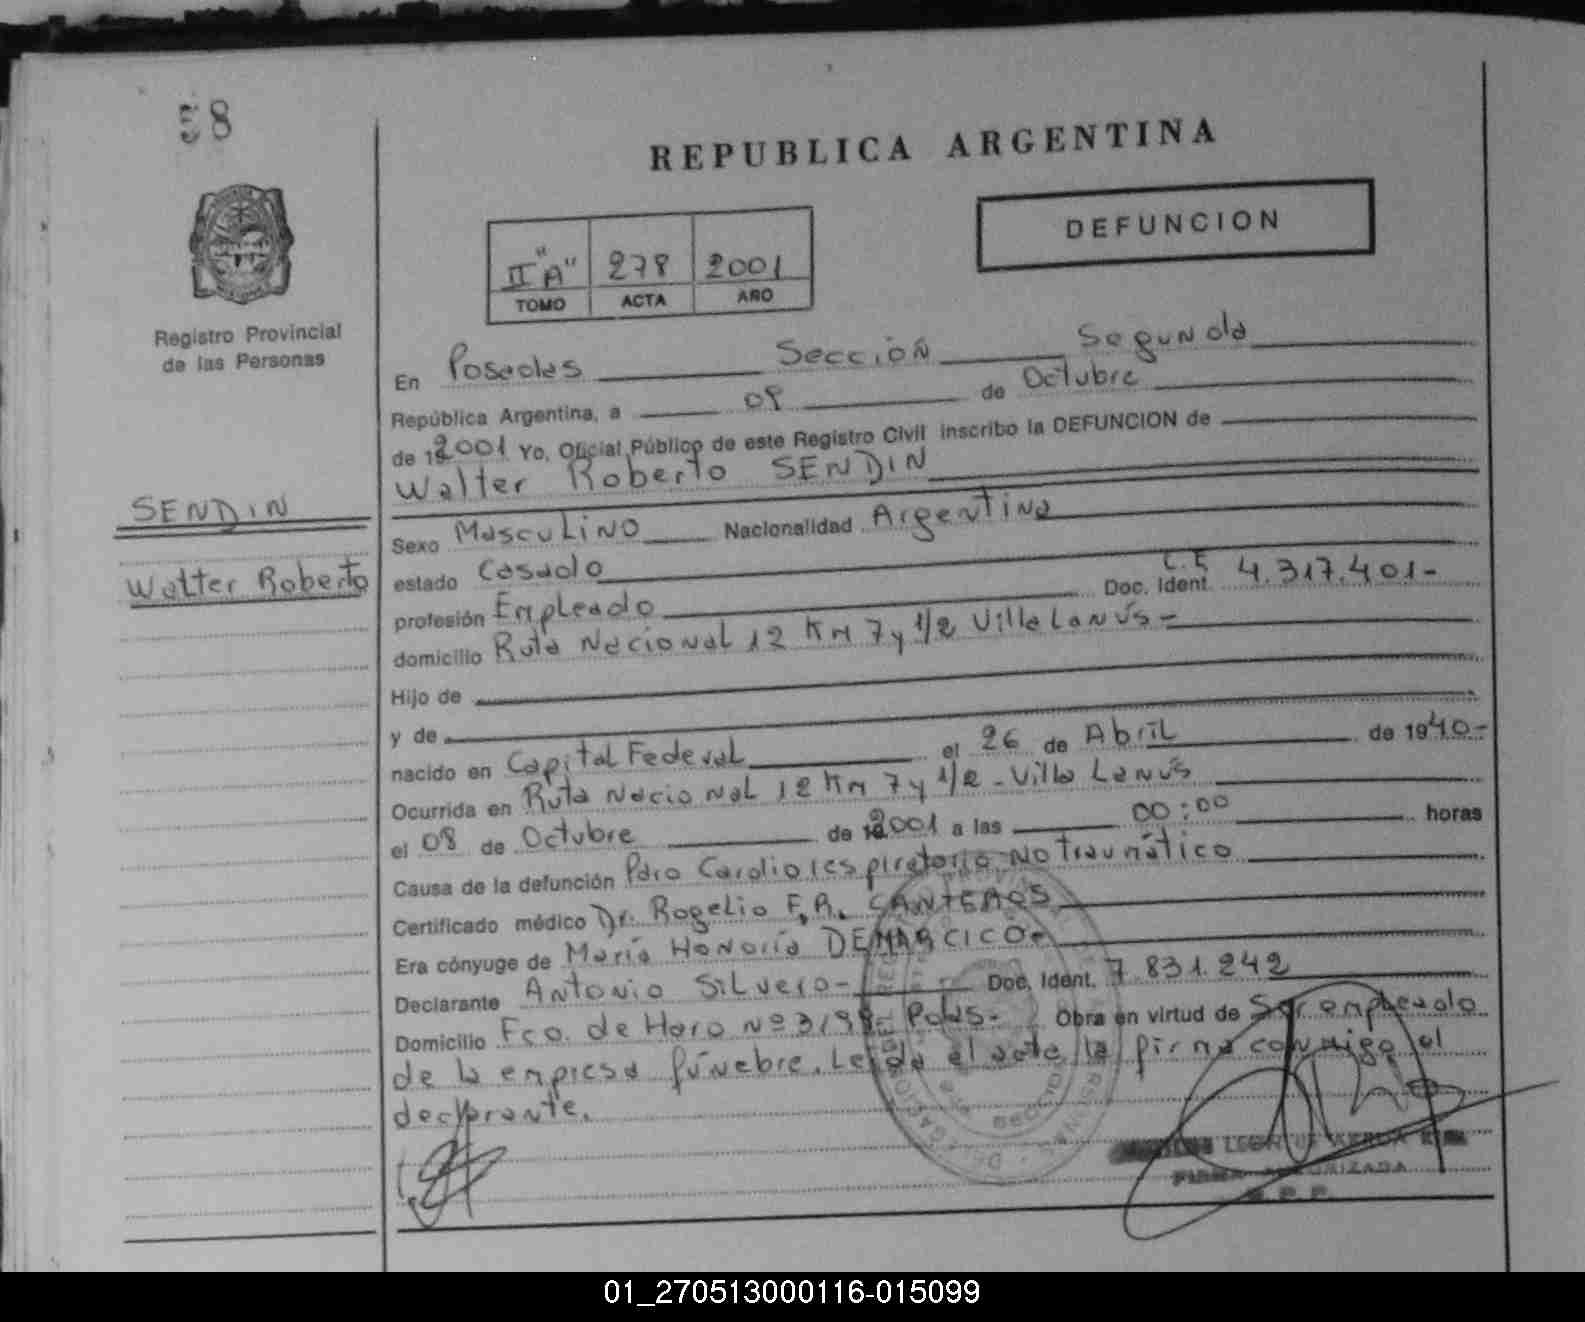 58
REPUBLICA ARGENTINA
DEFUNCION
II "A" 278 2001
TOMO ACTA AÑO
Registro Provincial
de las Personas
SENDIN
Walter Roberto
En Posadas Sección Segunda
República Argentina, a 08 de Octubre
de 2001 Yo, Oficial Público de este Registro Civil inscribo la DEFUNCION de
Walter Roberto SENDIN
Sexo Masculino Nacionalidad Argentina
estado Casado
profesión Empleado Doc. Ident. L.E 4.317.401-
domicilio Ruta Nacional 12 Km 7 y 1/2 Villa Lanús-
Hijo de
y de
nacido en Capital Federal el 26 de Abril de 1940-
Ocurrida en Ruta Nacional 12 Km 7 y 1/2 - Villa Lanús
el 08 de Octubre de 2001 a las 00:00 horas
Causa de la defunción Paro Cardiorespiratorio No traumático
Certificado médico Dr. Rogelio F.R. CANTEROS
Era cónyuge de María Honoria DEMARCICO-
Declarante Antonio Silvero- Doc. Ident. 7.831.242
Domicilio Fco. de Haro Nº 3198- Pdas- Obra en virtud de Ser empleado
de la empresa fúnebre. Leída el acta la firma conmigo el
declarante.
FIRMA AUTORIZADA
R.P.P.
01_270513000116-015099